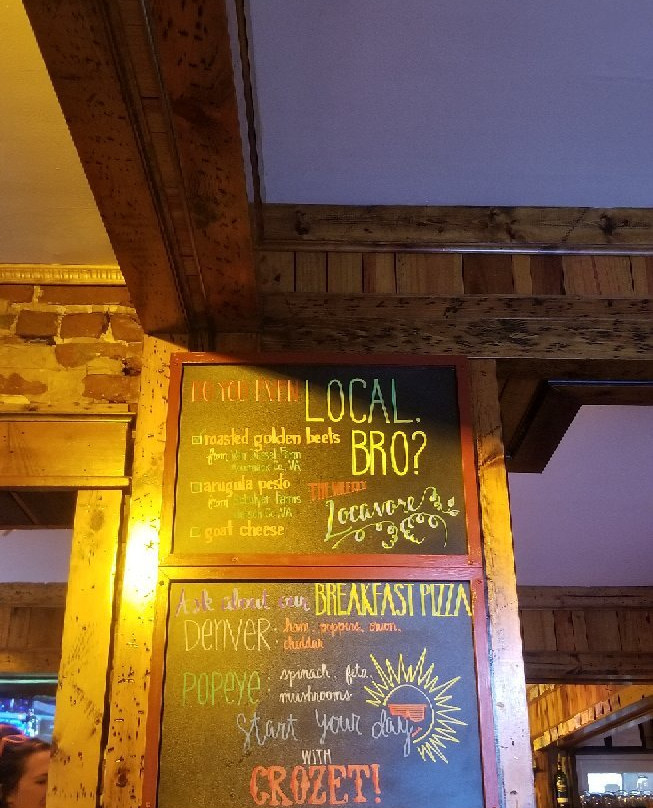 DO YOU EVEN LOCAL,
BRO?
roasted golden beets
from
Farm
Co, VA
arugula pesto
from
Farms
Co, VA
goat cheese
THE WEEKLY
Locavore
Ask about our BREAKFAST PIZZA
DENVER: ham, peppers, onion,
cheddar
POPEYE: spinach, feta,
mushrooms
Start your day
WITH
CROZET!